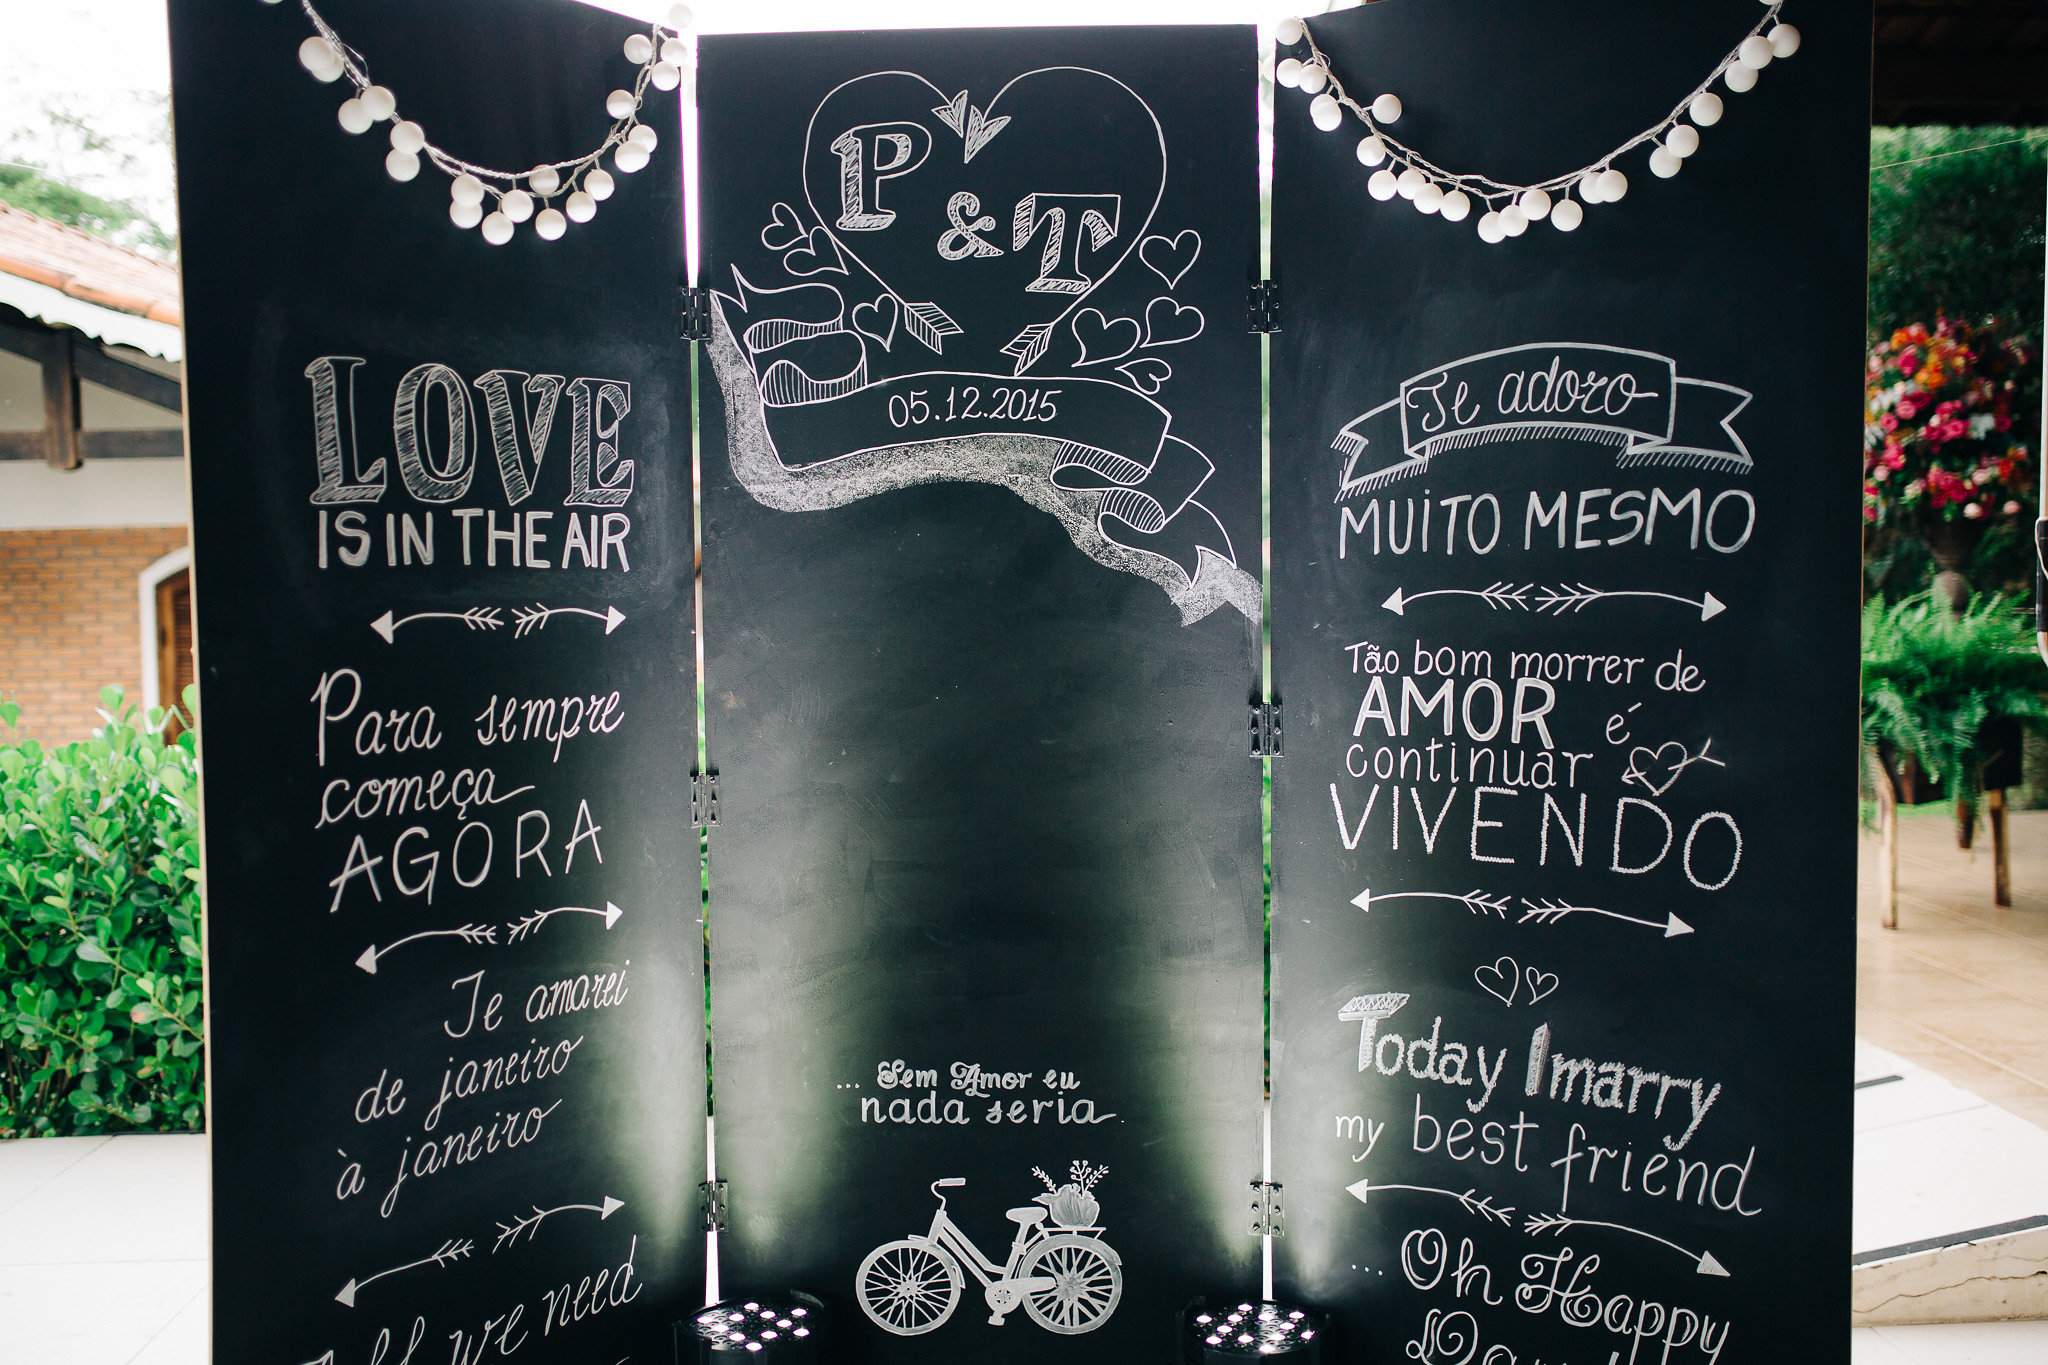 LOVE
IS IN THE AIR
Para sempre
começa
AGORA
Te amarei
de janeiro
à janeiro
All we need
P & T
05.12.2015
... Sem Amor eu
nada seria.
Te adoro
MUiTO MESMO
Tão bom morrer de
AMOR é
continuar
VIVENDO
Today I marry
my best friend
... Oh Happy